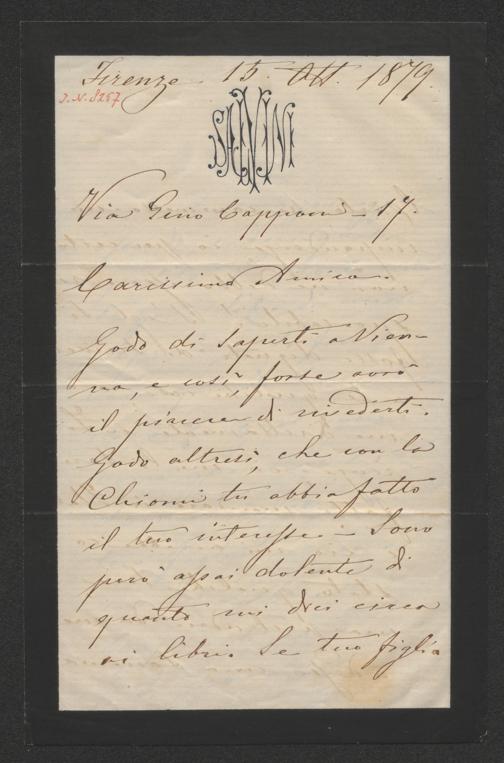 Firenze - 15. Ott. 1879.
J.N. 8257
SALVINI
Via Gino Capponi - 17.
Carissimo Amico.
Godo di saperti a Vien-
na, e così, forse avrò
il piacere di rivederti.
Godo altresì, che con la
Chiomi tu abbia fatto
il tuo interesse - Sono
però assai dolente di
quanto mi dici circa
ai libri. Se tuo figlio